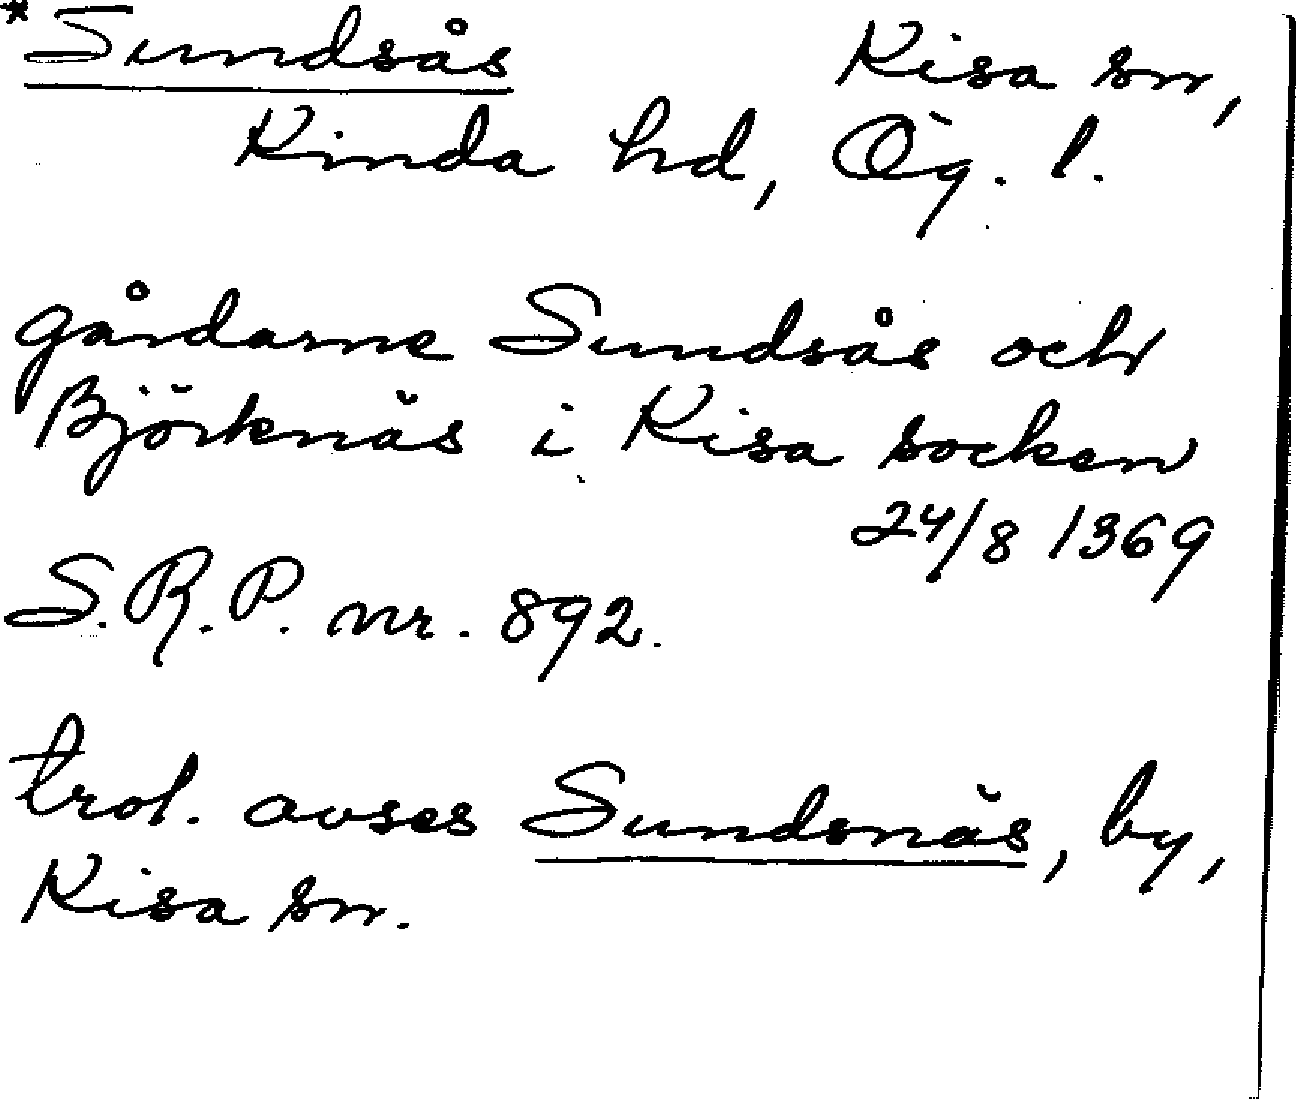 *Sundsås Kisa sn,
Kinda hd, Ög. l.
gårdarne Sundsås och
Björknäs i Kisa socken
24/8 1369
S.R.P. nr. 892.
trol. avses Sundsnäs, by,
Kisa sn.